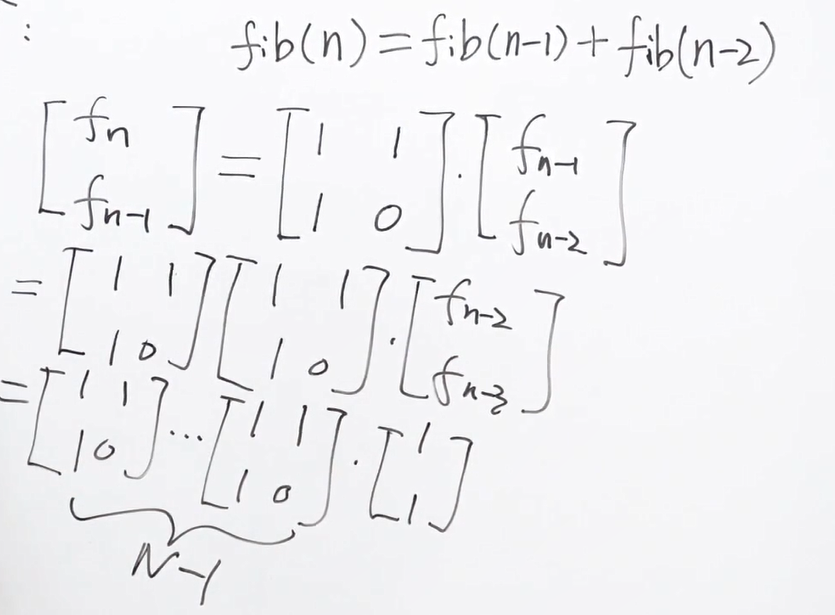 :
fib(n)=fib(n-1)+fib(n-2)
[fn fn-1] = [1 1 1 0] · [fn-1 fn-2]
= [1 1 1 0] [1 1 1 0] · [fn-2 fn-3]
= [1 1 1 0] ... [1 1 1 0] · [1 1]
N-1